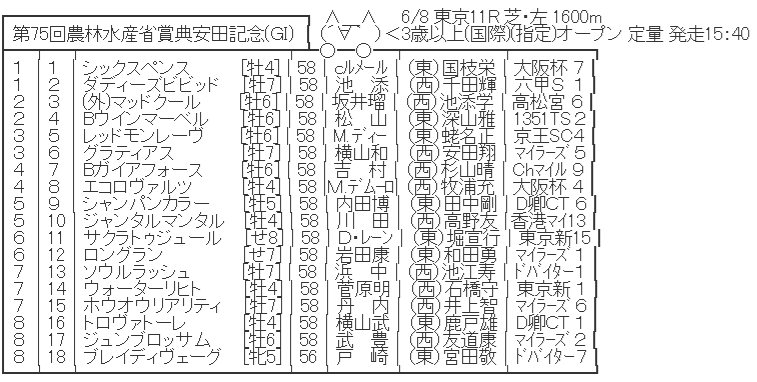 第75回農林水産省賞典安田記念(GI) ∧ ∧ 6/8 東京11R 芝・左 1600m
(´∀`) <3歳以上(国際)(指定)オープン 定量 発走15:40
1 | 1 | シックスペンス [牡4] | 58 | cルメール | (東)国枝栄 | 大阪杯 7
1 | 2 | ダディーズビビッド [牡7] | 58 | 池 添 | (西)千田輝 | 六甲S 1
2 | 3 | (外)マッドクール [牡6] | 58 | 坂井瑠 | (西)池添学 | 高松宮 6
2 | 4 | Bウインマーベル [牡6] | 58 | 松 山 | (東)深山雅 | 1351TS2
3 | 5 | レッドモンレーヴ [牡6] | 58 | M.ディー | (東)蛯名正 | 京王SC4
3 | 6 | グラティアス [牡7] | 58 | 横山和 | (西)安田翔 | マイラーズ 5
4 | 7 | Bガイアフォース [牡6] | 58 | 吉 村 | (西)杉山晴 | Chマイル 9
4 | 8 | エコロヴァルツ [牡4] | 58 | M.デムーロ | (西)牧浦充 | 大阪杯 4
5 | 9 | シャンパンカラー [牡5] | 58 | 内田博 | (東)田中剛 | D卿CT 6
5 | 10 | ジャンタルマンタル [牡4] | 58 | 川 田 | (西)高野友 | 香港マイ13
6 | 11 | サクラトゥジュール [せ8] | 58 | D・レーン | (東)堀宣行 | 東京新15
6 | 12 | ロングラン [せ7] | 58 | 岩田康 | (東)和田勇 | マイラーズ 1
7 | 13 | ソウルラッシュ [牡7] | 58 | 浜 中 | (西)池江寿 | ドバイター1
7 | 14 | ウォーターリヒト [牡4] | 58 | 菅原明 | (西)石橋守 | 東京新 1
7 | 15 | ホウオウリアリティ [牡7] | 58 | 丹 内 | (西)井上智 | マイラーズ 6
8 | 16 | トロヴァトーレ [牡4] | 58 | 横山武 | (東)鹿戸雄 | D卿CT 1
8 | 17 | ジュンブロッサム [牡6] | 58 | 武 豊 | (西)友道康 | マイラーズ 2
8 | 18 | ブレイディヴェーグ [牝5] | 56 | 戸 崎 | (東)宮田敬 | ドバイター7